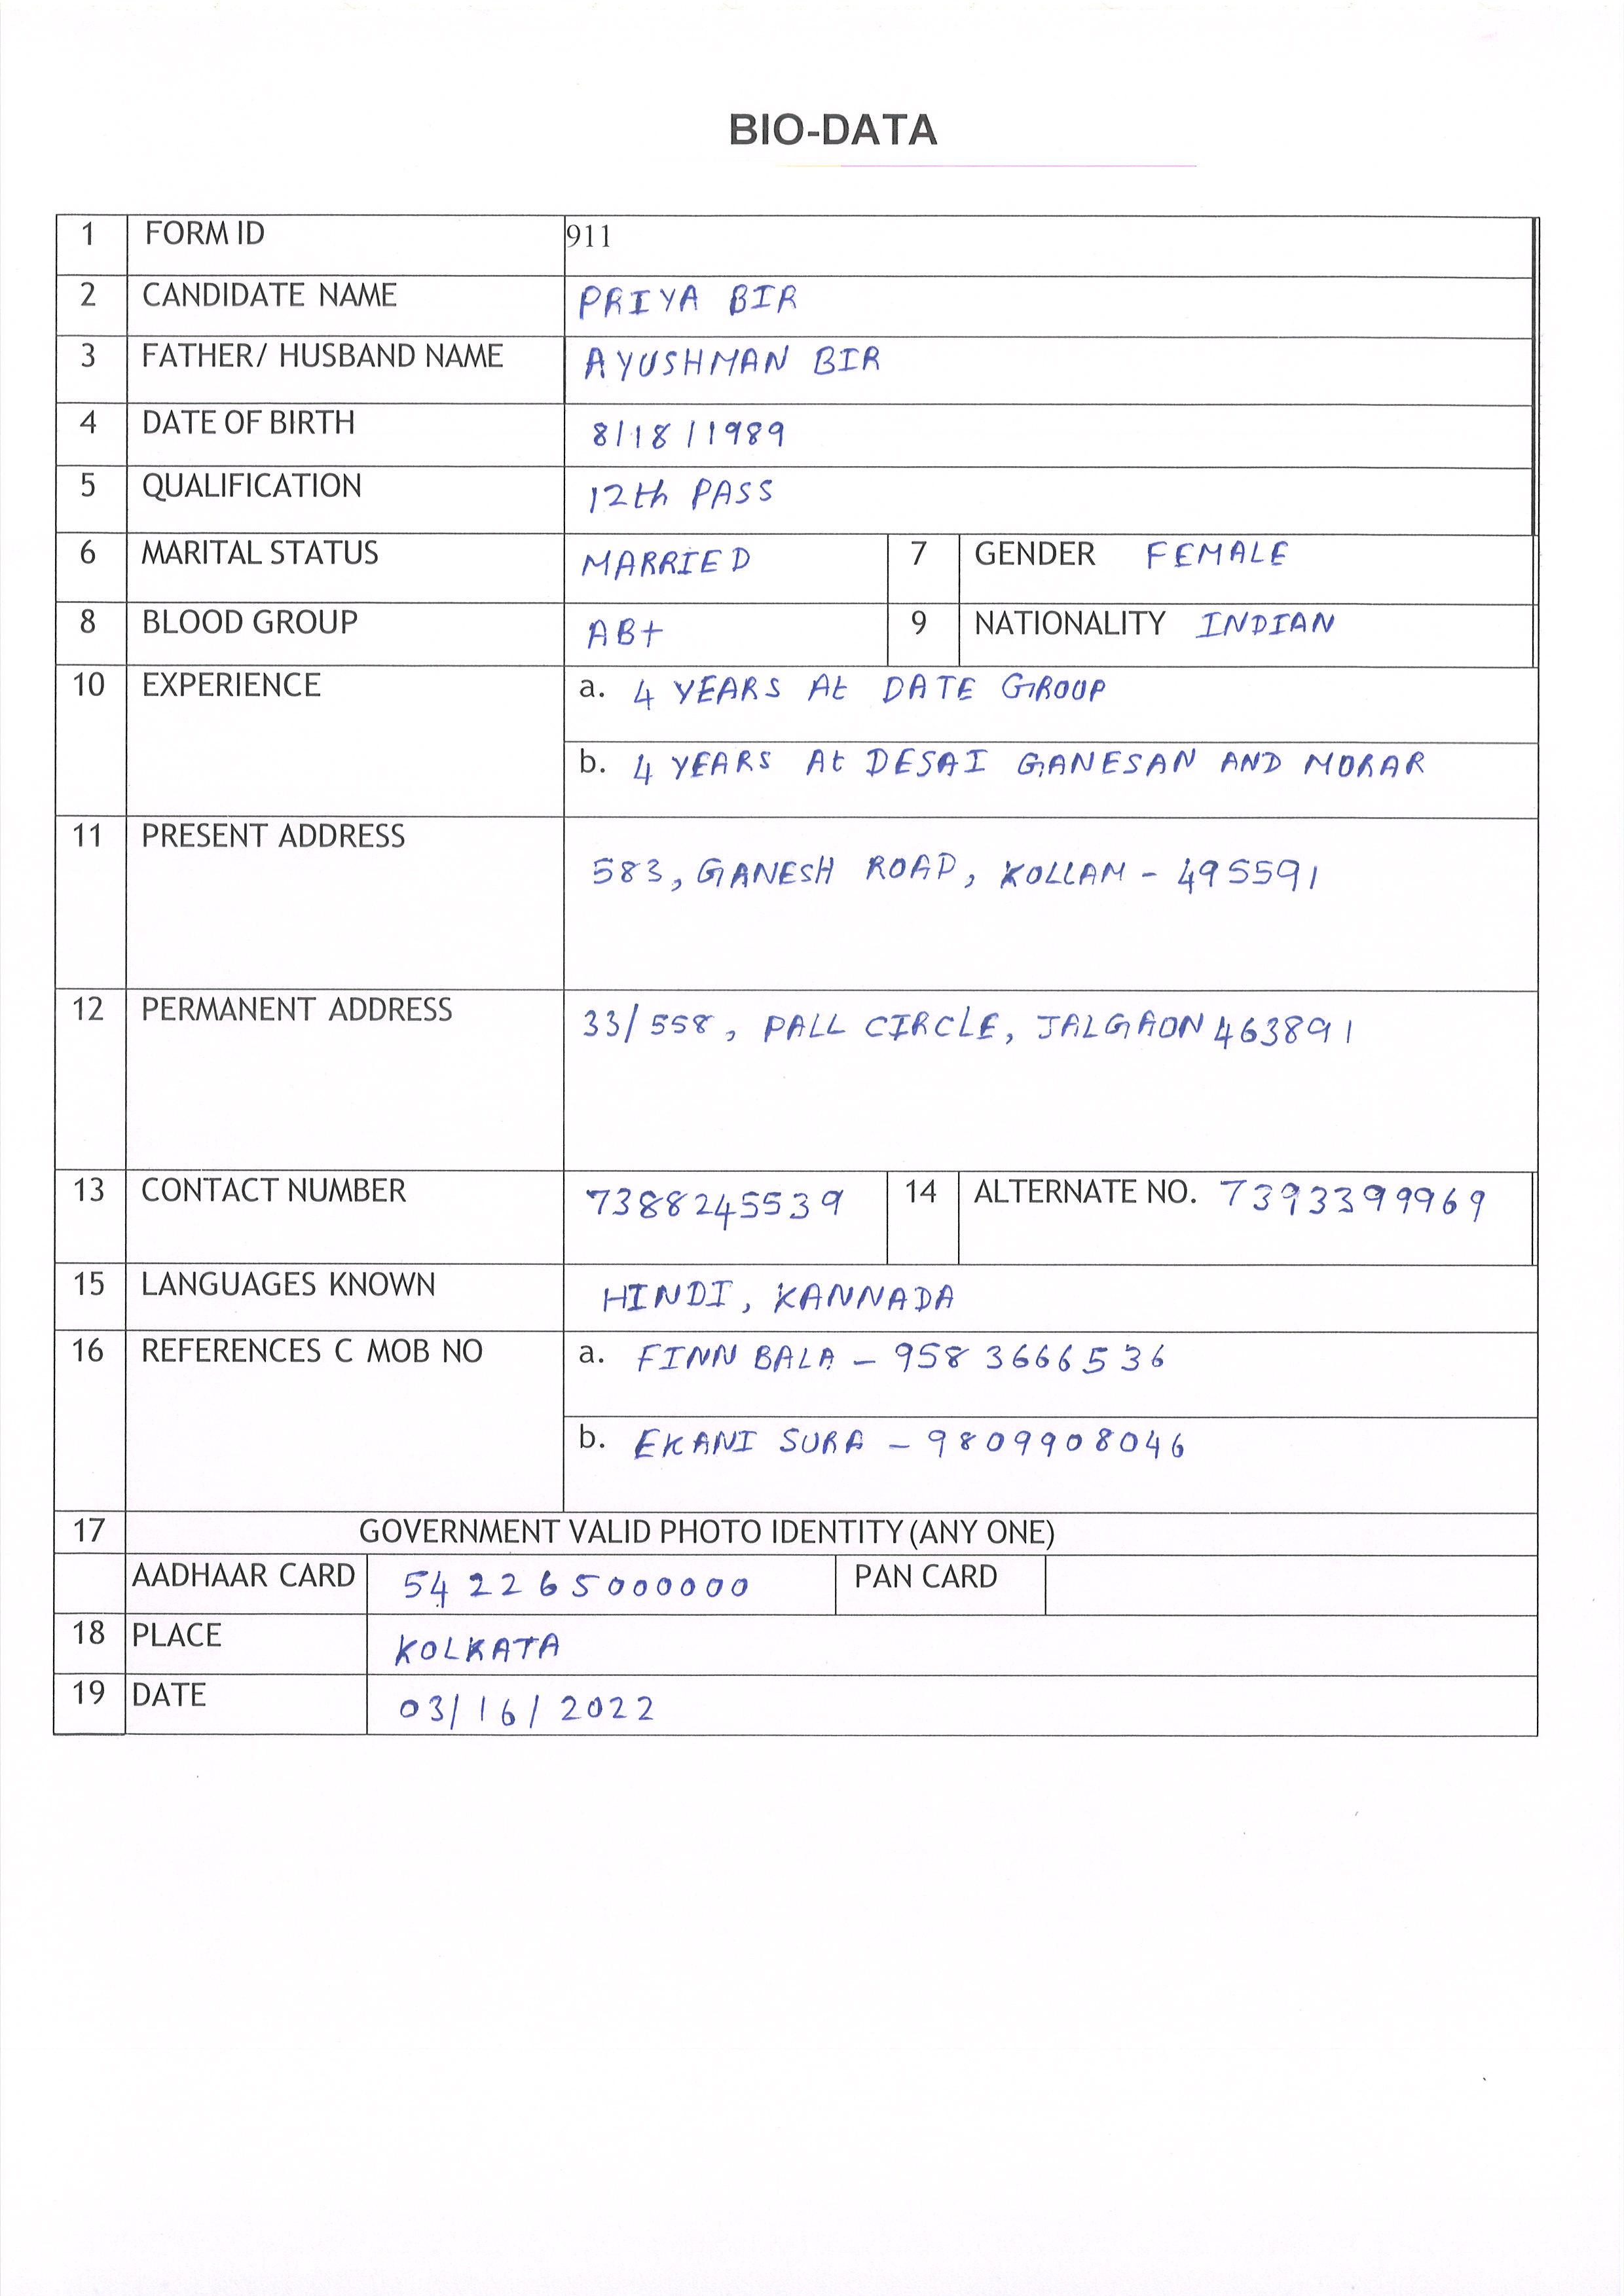 BIO-DATA
1 FORM ID 911
2 CANDIDATE NAME PRIYA BIR
3 FATHER/ HUSBAND NAME AYUSHMAN BIR
4 DATE OF BIRTH 8/18/1989
5 QUALIFICATION 12th PASS
6 MARITAL STATUS MARRIED 7 GENDER FEMALE
8 BLOOD GROUP AB+ 9 NATIONALITY INDIAN
10 EXPERIENCE a. 4 YEARS At DATE GROUP
b. 4 YEARS At DESAI GANESAN AND MORAR
11 PRESENT ADDRESS
583, GANESH ROAD, KOLLAM - 495591
12 PERMANENT ADDRESS 33/558, PALL CIRCLE, JALGAON 463891
13 CONTACT NUMBER 7388245539 14 ALTERNATE NO. 7393399969
15 LANGUAGES KNOWN HINDI, KANNADA
16 REFERENCES C MOB NO a. FINN BALA - 9583666536
b. EKANI SURA - 9809908046
17 GOVERNMENT VALID PHOTO IDENTITY (ANY ONE)
AADHAAR CARD 542265000000 PAN CARD
18 PLACE KOLKATA
19 DATE 03/16/2022